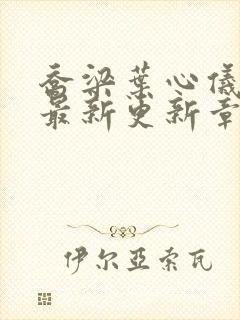 乔梁葉心儀
最新更新章
伊尔亚索瓦